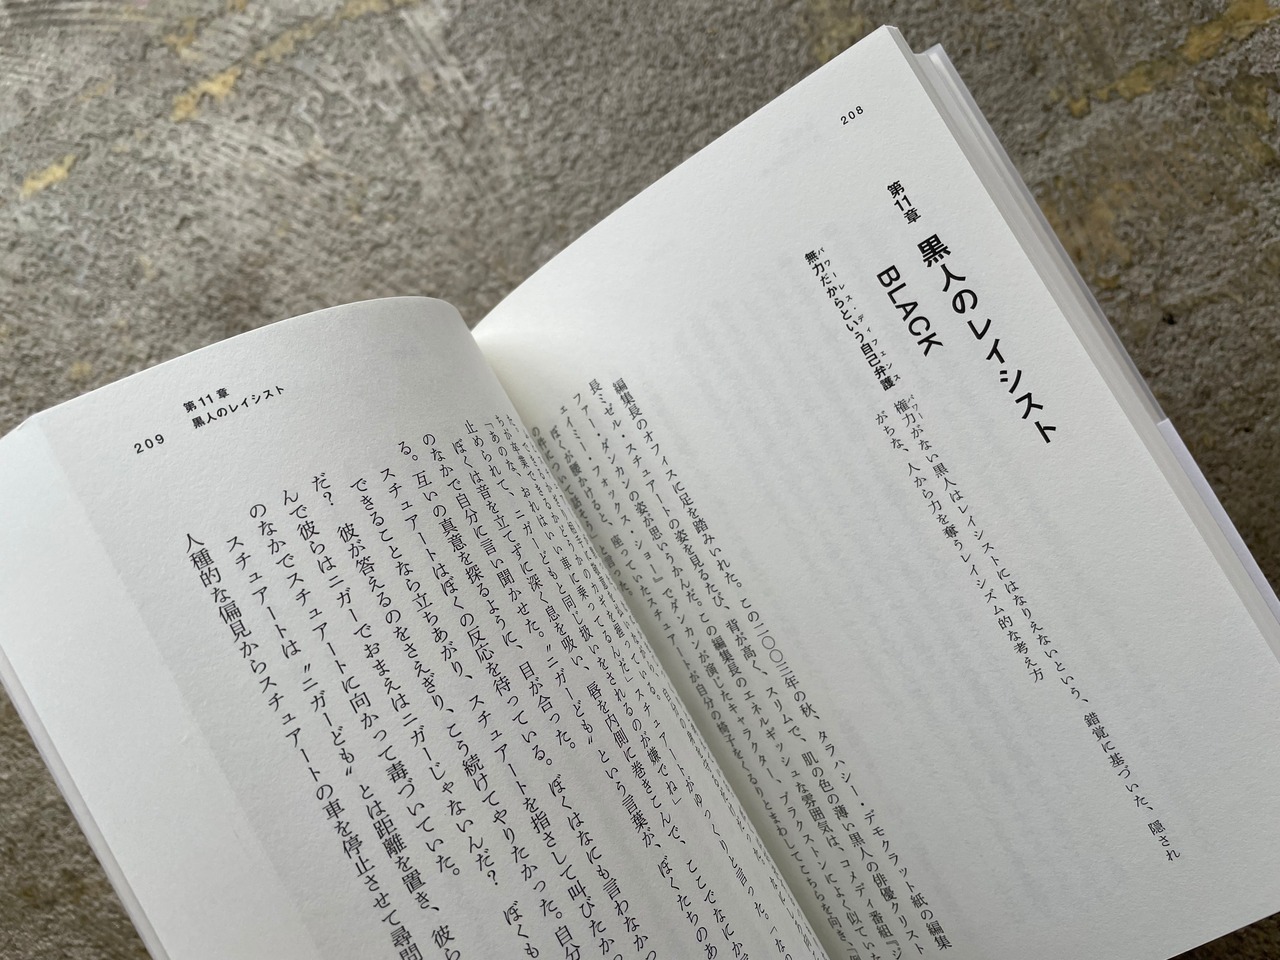 208
第11章
黒人のレイシスト
BLACK
無力だからという自己弁護
パワーレス・ディフェンス
権力がない黒人はレイシストにはなりえないという、錯覚に基づいた、隠され
パワー
がちな、人から力を奪うレイシズム的な考え方
編集長のオフィスに足を踏みいれた。この二〇〇三年の秋、タラハシー・デモクラット紙の編集
長ミゼル・スチュアートの姿を見るたび、背が高く、スリムで、肌の色の薄い黒人の俳優クリスト
ファー・ダンカンの姿が思いうかんだ。この編集長のエネルギッシュな雰囲気は、コメディ番組『ジ
ェイミー・フォックス・ショー』でダンカンが演じたキャラクター、ブラクストンによく似ていた
ぼくが腰かけると、座っていたスチュアートが自分の椅子をくるりとまわしてこちらを向き、
209
第11章
黒人のレイシスト
「あのな、ニガーどもと同じ扱いをされるのが嫌でね」
止められて、
ぼくは音を立てずに深く息を吸い、唇を内側に巻きこんで、ここでなにか
のなかで自分に言い聞かせた。〝ニガーども〟という言葉が、ぼくたちのあ
る。互いの真意を探るように、目が合った。ぼくはなにも言わなかっ
スチュアートはぼくの反応を待っている。
できることなら立ちあがり、スチュアートを指さして叫びたかっ
だ? 彼が答えるのをさえぎり、こう続けてやりたかった。自分
んで彼らはニガーでおまえはニガーじゃないんだ? ぼくも
のなかでスチュアートに向かって毒づいていた。
スチュアートは〝ニガーども〟とは距離を置き、彼ら
人種的な偏見からスチュアートの車を停止させて尋問